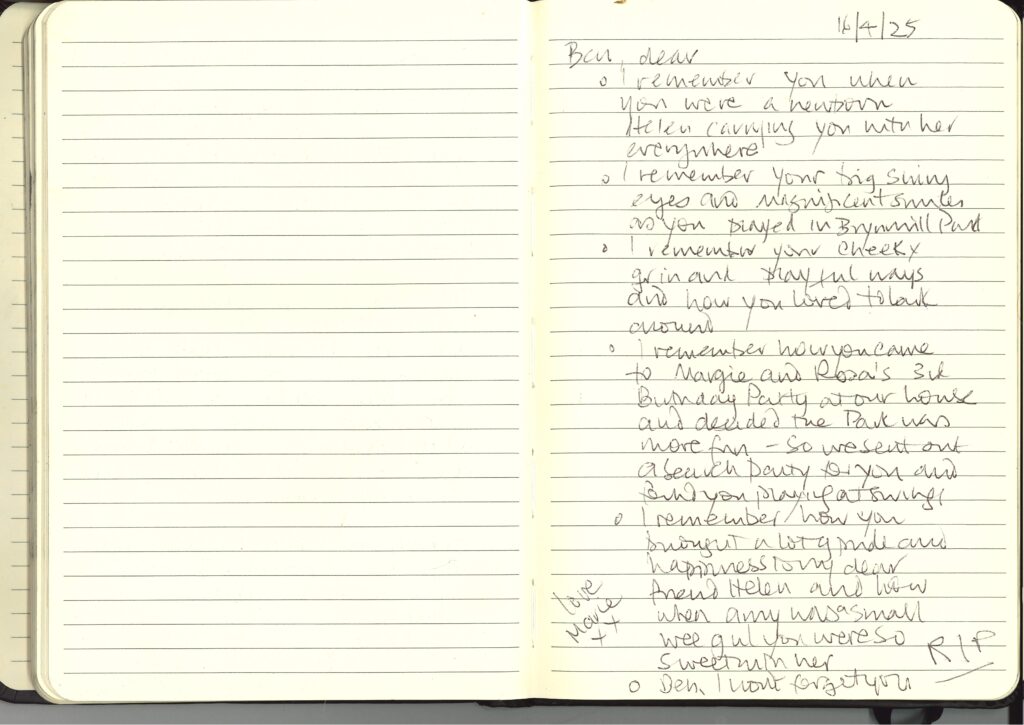 16/4/25
Ben, dear
o I remember you when
you were a newborn
Helen carrying you with her
everywhere
o I remember your big, shiny
eyes and magnificent smiles
as you played in Brynmill Park
o I remember your cheeky
grin and playful ways
and how you loved to lark
around
o I remember how you came
to Margie and Rosa's 3rd
Birthday Party at our house
and decided the Park was
more fun – so we sent out
a search party for you and
found you playing at swings
o I remember how you
brought a lot of pride and
happiness to my dear
friend Helen and how
when amy was a small
wee girl you were so
sweet with her
o Ben, I wont forget you
RIP
love
Marie
++